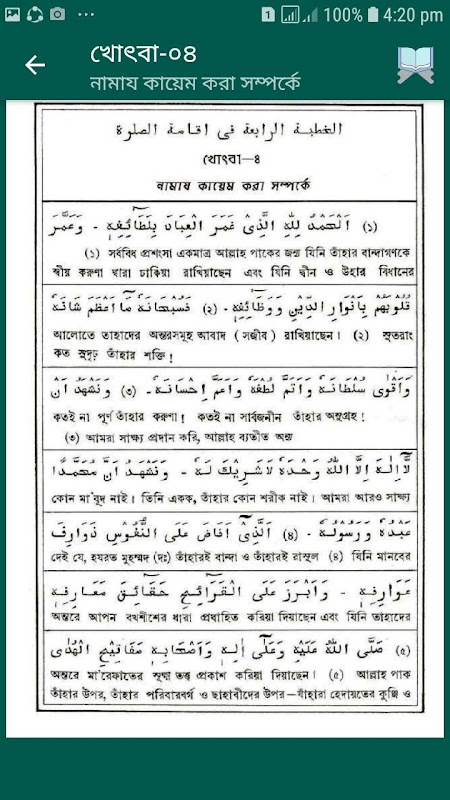 100% 4:20 pm
খোৎবা-০৪
নামায কায়েম করা সম্পর্কে
الخطبة الرابعة فى اقامة الصلوة
খোৎবা—৪
নামায কায়েম করা সম্পর্কে
(١) اَلْحَمْدُ لِلّٰهِ الَّذِىْ غَمَرَ الْعِبَادَ بِلَطَائِفِهٖ - وَعَمَّرَ
(১) সর্ববিধ প্রশংসা একমাত্র আল্লাহ পাকের জন্য যিনি তাঁহার বান্দাগণকে
স্বীয় করুণা দ্বারা ঢাকিয়া রাখিয়াছেন এবং যিনি দ্বীন ও উহার বিধানের
قُلُوْبَهُمْ بِاَنْوَارِ الدِّيْنِ وَوَظَائِفِهٖ - (٢) فَسُبْحَانَهٗ مَا اَعْظَمَ شَانَهٗ
আলোতে তাহাদের অন্তরসমূহ আবাদ (সজীব) রাখিয়াছেন। (২) সুতরাং
কত সুদৃঢ় তাঁহার শক্তি!
وَاَقْوٰى سُلْطَانَهٗ وَاَتَمَّ لُطْفَهٗ وَاَعَمَّ اِحْسَانَهٗ - (٣) وَنَشْهَدُ اَنْ
কতই না পূর্ণ তাঁহার করুণা! কতই না সার্বজনীন তাঁহার অনুগ্রহ!
(৩) আমরা সাক্ষ্য প্রদান করি, আল্লাহ ব্যতীত অন্য
لَّا اِلٰهَ اِلَّا اللّٰهُ وَحْدَهٗ لَا شَرِيْكَ لَهٗ - وَنَشْهَدُ اَنَّ مُحَمَّدًا
কোন মা'বূদ নাই। তিনি একক, তাঁহার কোন শরীক নাই। আমরা আরও সাক্ষ্য
عَبْدُهٗ وَرَسُوْلُهٗ - (٤) اَلَّذِىْ اَفَاضَ عَلَى النُّفُوْسِ ذَوَارِفَ
দেই যে, হযরত মুহম্মদ (দঃ) তাঁহারই বান্দা ও তাঁহারই রাসূল (৪) যিনি মানবের
عَوَارِفِهٖ - وَاَبْرَزَ عَلَى الْقَرَائِحِ حَقَائِقَ مَعَارِفِهٖ
অন্তরে আপন বখশীশের ধারা প্রবাহিত করিয়া দিয়াছেন এবং যিনি তাহাদের
(٥) صَلَّى اللّٰهُ عَلَيْهِ وَعَلٰى اٰلِهٖ وَاَصْحَابِهٖ مَفَاتِيْحِ الْهُدٰى
অন্তরে মা'রেফাতের সূক্ষ্ম তত্ত্ব প্রকাশ করিয়া দিয়াছেন। (৫) আল্লাহ পাক
তাঁহার উপর, তাঁহার পরিবারবর্গ ও ছাহাবীদের উপর—যাঁহারা হেদায়তের কুঞ্জি ও